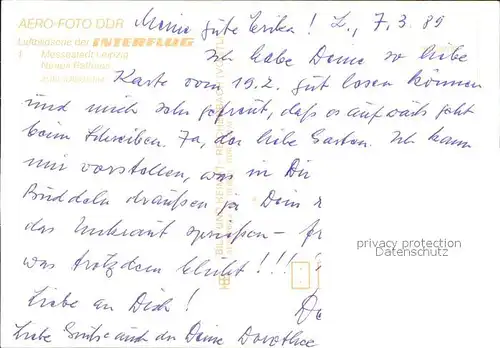 AERO-FOTO DDR
Meine gute Erika! L., 7.3.89
Luftbildserie der INTERFLUG
Ich habe Deine so liebe
Messestadt Leipzig
Neues Rathaus
Karte vom 19.2. gut lesen können
und mich sehr gefreut, daß es aufwärts geht
beim Schreiben. Ja, der liebe Garten. Ich kann
mir vorstellen, was in Dir
Buddeln draußen ja Dein
das Unkraut sprießen –
was trotzdem blüht!!!
privacy protection
Datenschutz
Liebe an Dich!
Liebe Grüße auch an Deine Dorothee
BILD UND HEIMAT